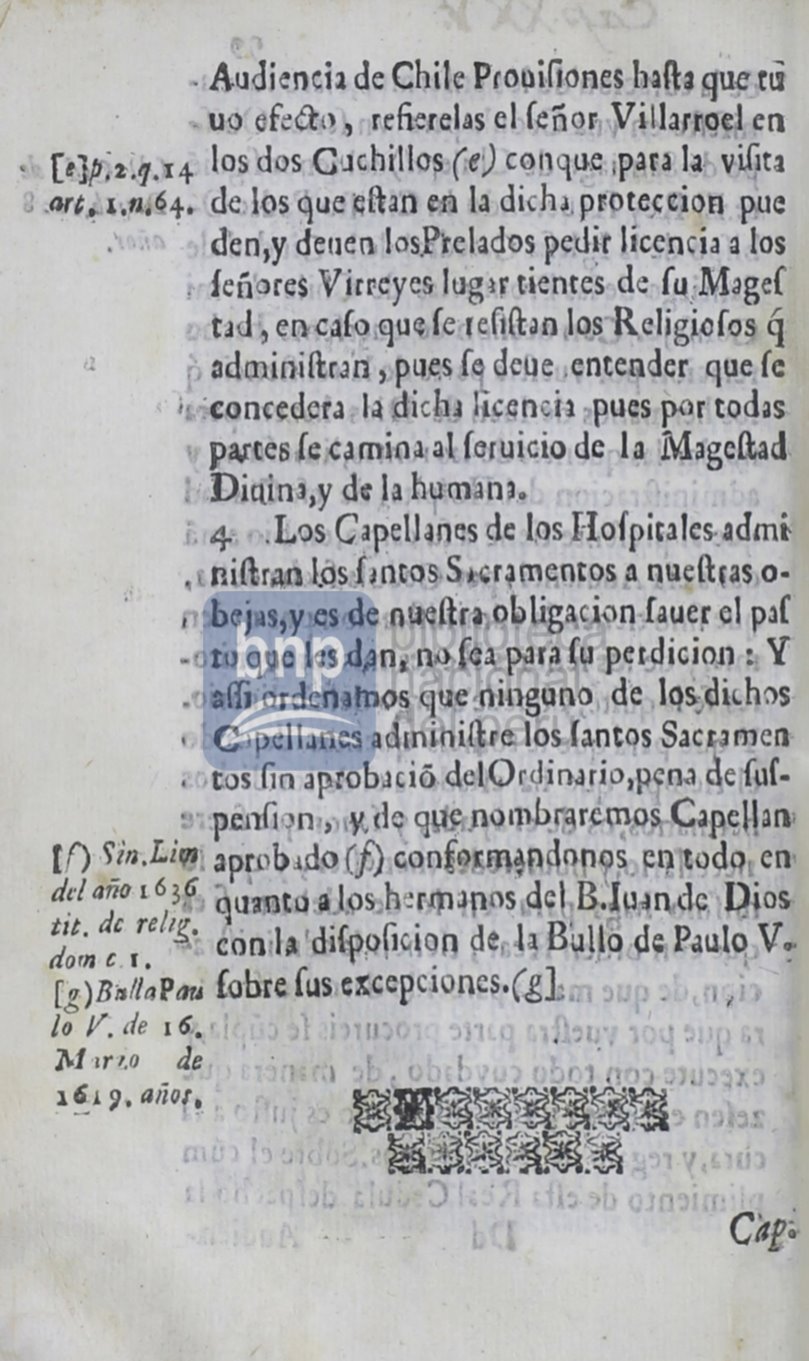 Audiencia de Chile Prouiſiones haſta que tū
uo efecto, refierelas el ſeñor Villarroel en
los dos Cuchillos (e) conque para la viſita
de los que eſtan en la dicha proteccion pue
den, y deuen los Prelados pedir licencia a los
ſeñores Virreyes lugar tientes de ſu Mageſ
tad, en caſo que ſe reſiſtan los Religioſos q̃
adminiſtran, pues ſe deue entender que ſe
concedera la dicha licencia pues por todas
partes ſe camina al ſeruicio de la Mageſtad
Diuina, y de la humana.
4 Los Capellanes de los Hoſpitales admi
niſtran los ſantos Sacramentos a nueſtras o-
bejas, y es de nueſtra obligacion ſauer el paſ
to que les dan, no ſea para ſu perdicion: Y
aſſi ordenamos que ninguno de los dichos
Capellanes adminiſtre los ſantos Sacramen
tos ſin aprobació delOrdinario, pena de ſuſ-
penſion, y de que nombraremos Capellan
aprobado (f) conformandonos en todo en
quanto a los hermanos del B. Iuan de Dios
con la diſpoſicion de la Bullo de Paulo V.
ſobre ſus excepciones. (g]
[e] p. 2. q. 14
art. 1. n. 64.
[f) Sin. Lim
del año 1636
tit. de relig.
dom c 1.
[g) Bulla Pau
lo V. de 16.
Marzo de
1619. años.
Cap.
bnp
biblioteca
nacional
del perú